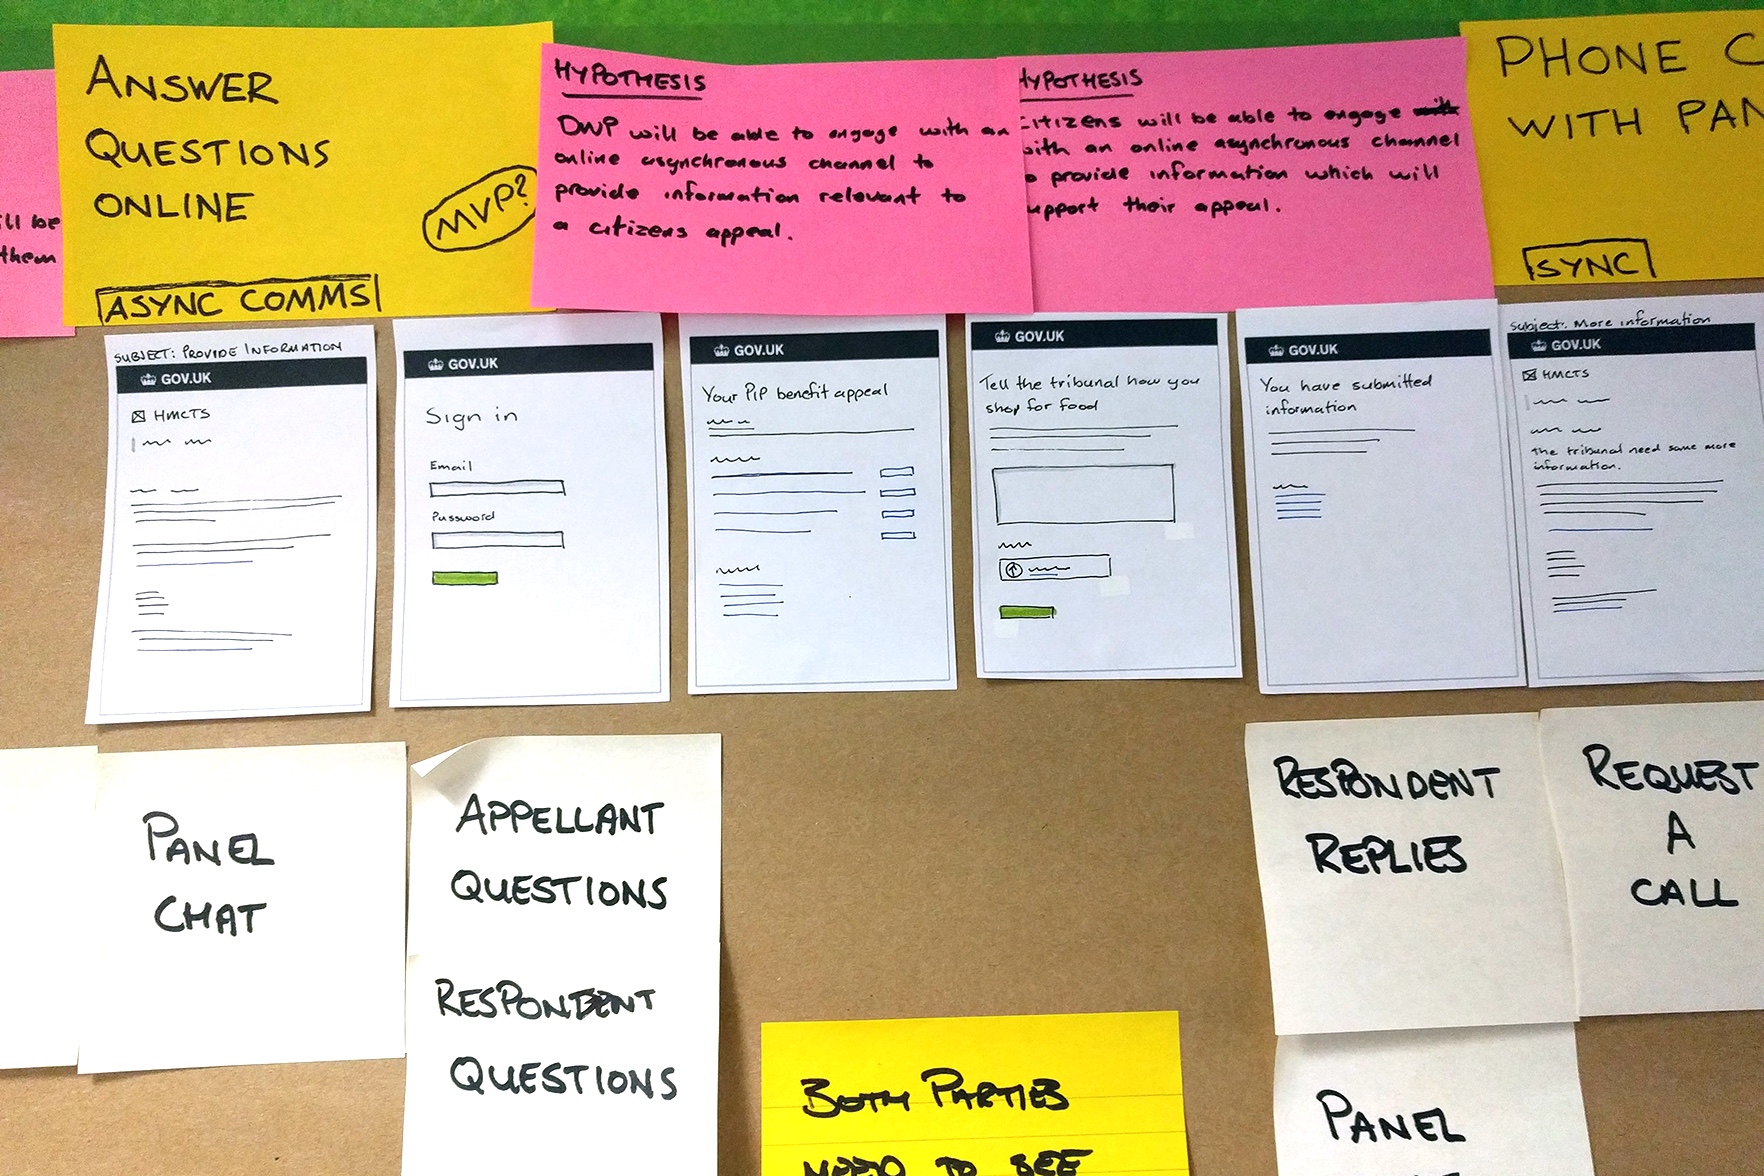 ill be
them
ANSWER
QUESTIONS
ONLINE
MVP?
ASYNC COMMS
HYPOTHESIS
DWP will be able to engage with an
online asynchronous channel to
provide information relevant to
a citizens appeal.
HYPOTHESIS
Citizens will be able to engage
with an online asynchronous channel
o provide information which will
upport their appeal.
PHONE C
WITH PAN
SYNC
SUBJECT: PROVIDE INFORMATION
GOV.UK
HMCTS
GOV.UK
Sign in
Email
Password
GOV.UK
Your PIP benefit appeal
GOV.UK
Tell the tribunal how you
shop for food
GOV.UK
You have submitted
information
Subject: More information
GOV.UK
HMCTS
The tribunal need some more
information.
PANEL
CHAT
APPELLANT
QUESTIONS
RESPONDENT
QUESTIONS
BOTH PARTIES
NEED TO SEE
RESPONDENT
REPLIES
REQUEST
A
CALL
PANEL